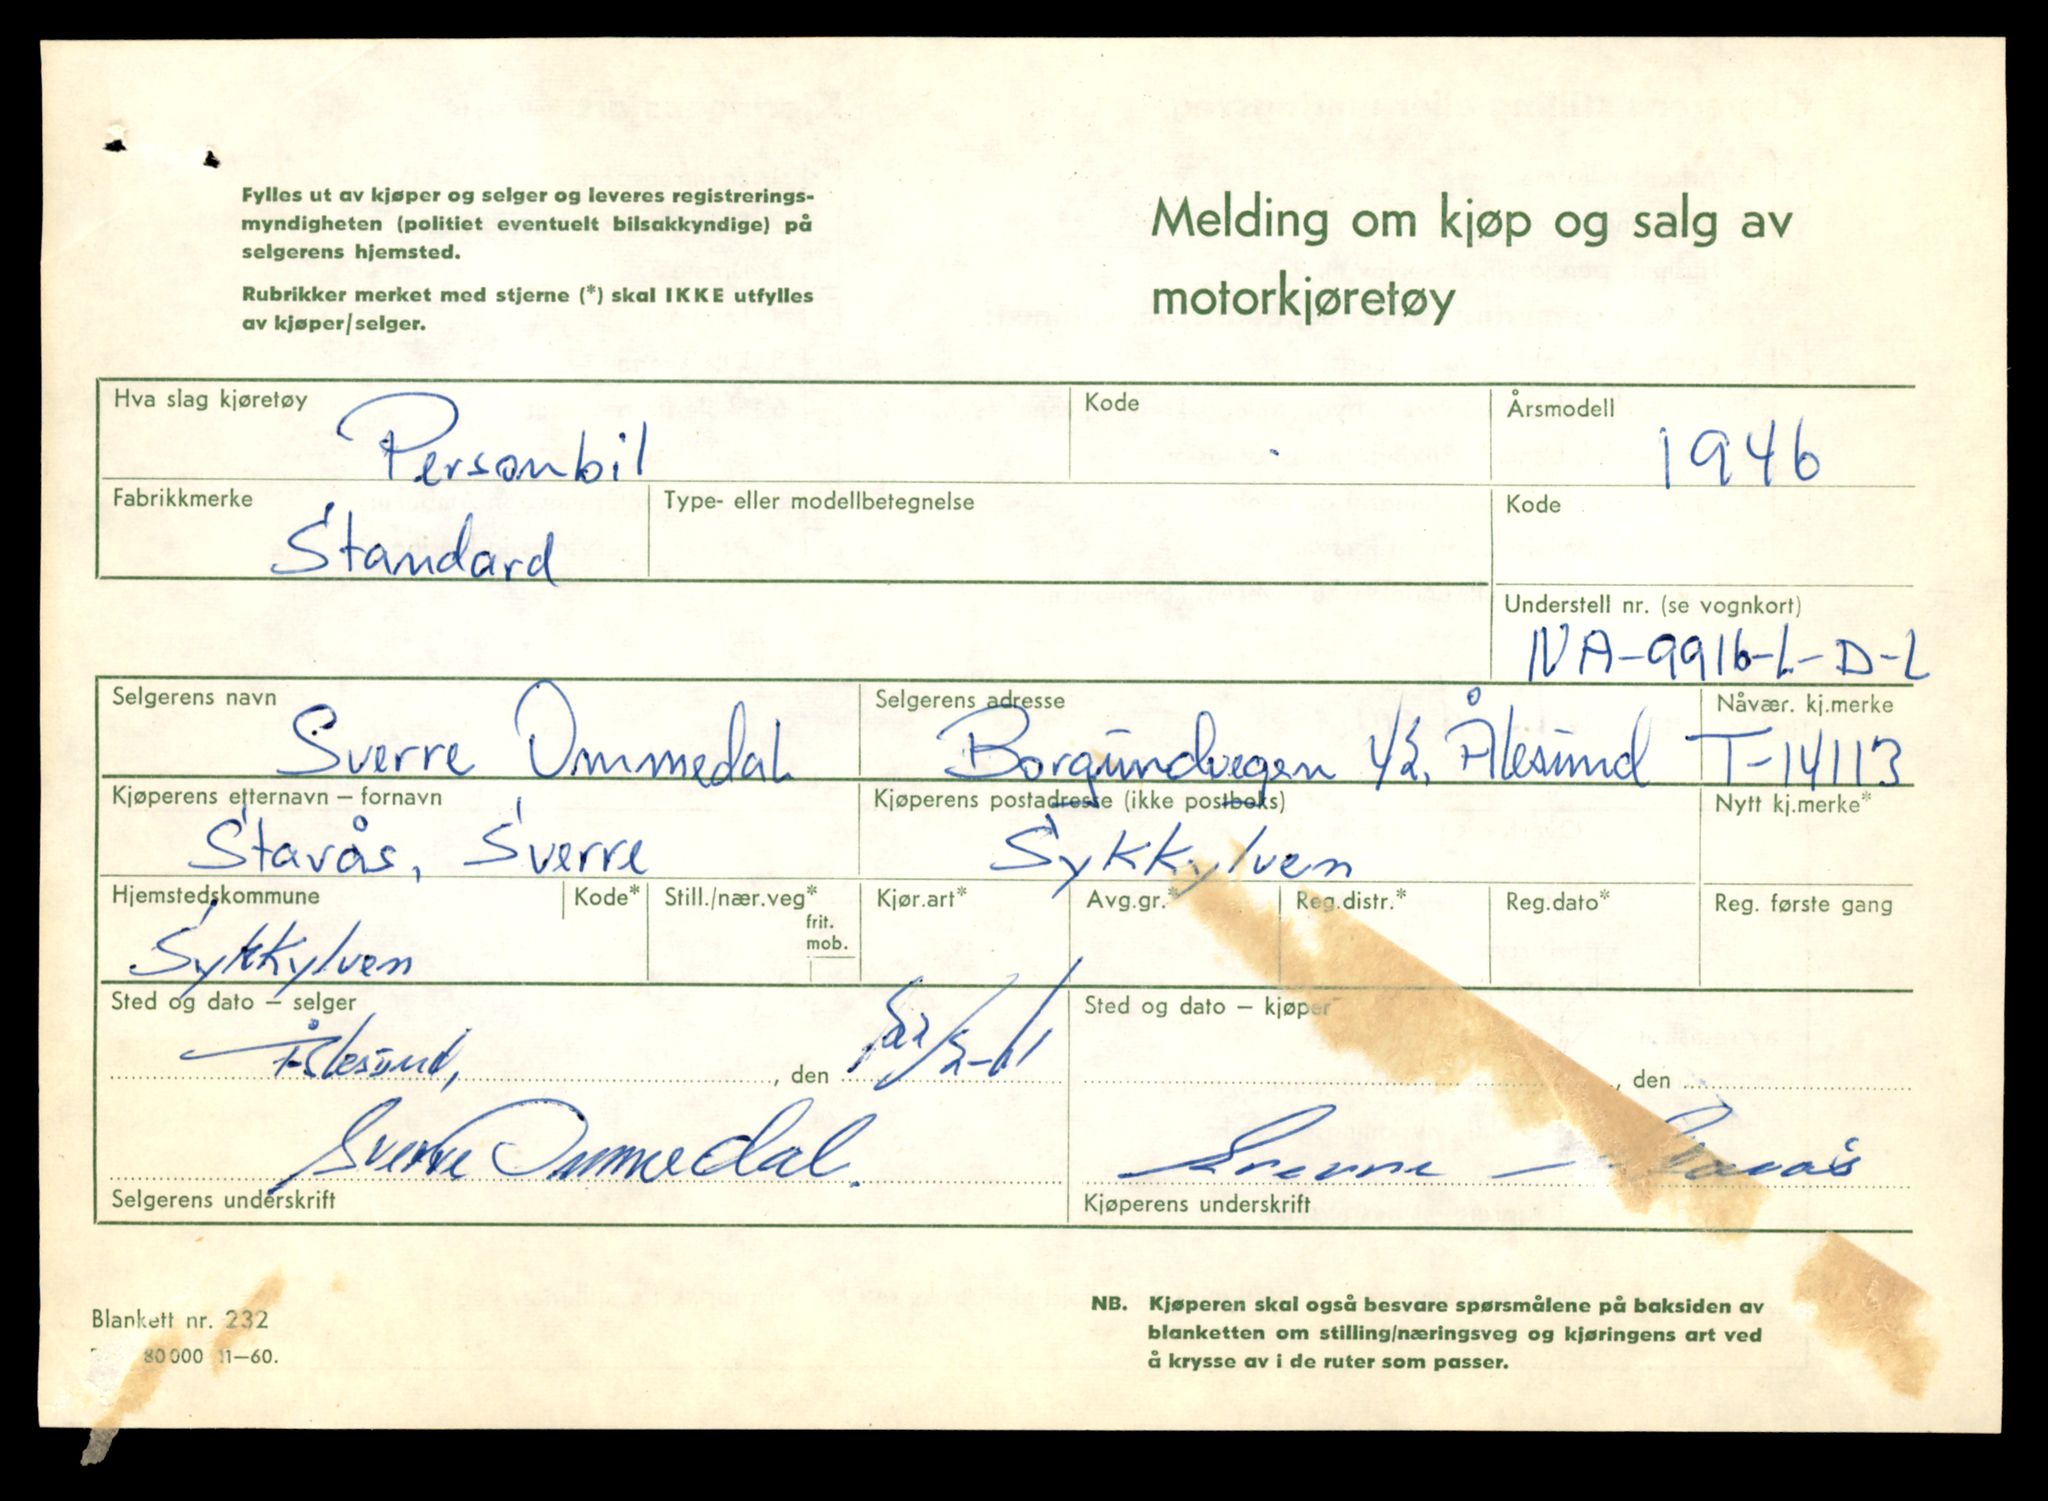 Fylles ut av kjøper og selger og leveres registrerings-
myndigheten (politiet eventuelt bilsakkyndige) på
selgerens hjemsted.
Rubrikker merket med stjerne (*) skal IKKE utfylles
av kjøper/selger.
Melding om kjøp og salg av
motorkjøretøy
Hva slag kjøretøy
Personbil
Kode
Årsmodell
1946
Fabrikkmerke
Standard
Type- eller modellbetegnelse
Kode
Understell nr. (se vognkort)
NA-9916-L-D-L
Selgerens navn
Sverre Ommedal
Selgerens adresse
Borgundvegen Ålesund
Nåvær. kj.merke
T-14113
Kjøperens etternavn – fornavn
Stavås, Sverre
Kjøperens postadresse (ikke postboks)
Sykkylven
Nytt kj.merke*
Hjemstedskommune
Sykkylven
Kode*
Still./nær.veg*
frit.
mob.
Kjør.art*
Avg.gr.*
Reg.distr.*
Reg.dato*
Reg. første gang
Sted og dato – selger
Ålesund, , den
Sted og dato – kjøper
, den
Sverre Ommedal.
Selgerens underskrift
Sverre Stavås
Kjøperens underskrift
Blankett nr. 232
80 000 11–60.
NB. Kjøperen skal også besvare spørsmålene på baksiden av
blanketten om stilling/næringsveg og kjøringens art ved
å krysse av i de ruter som passer.